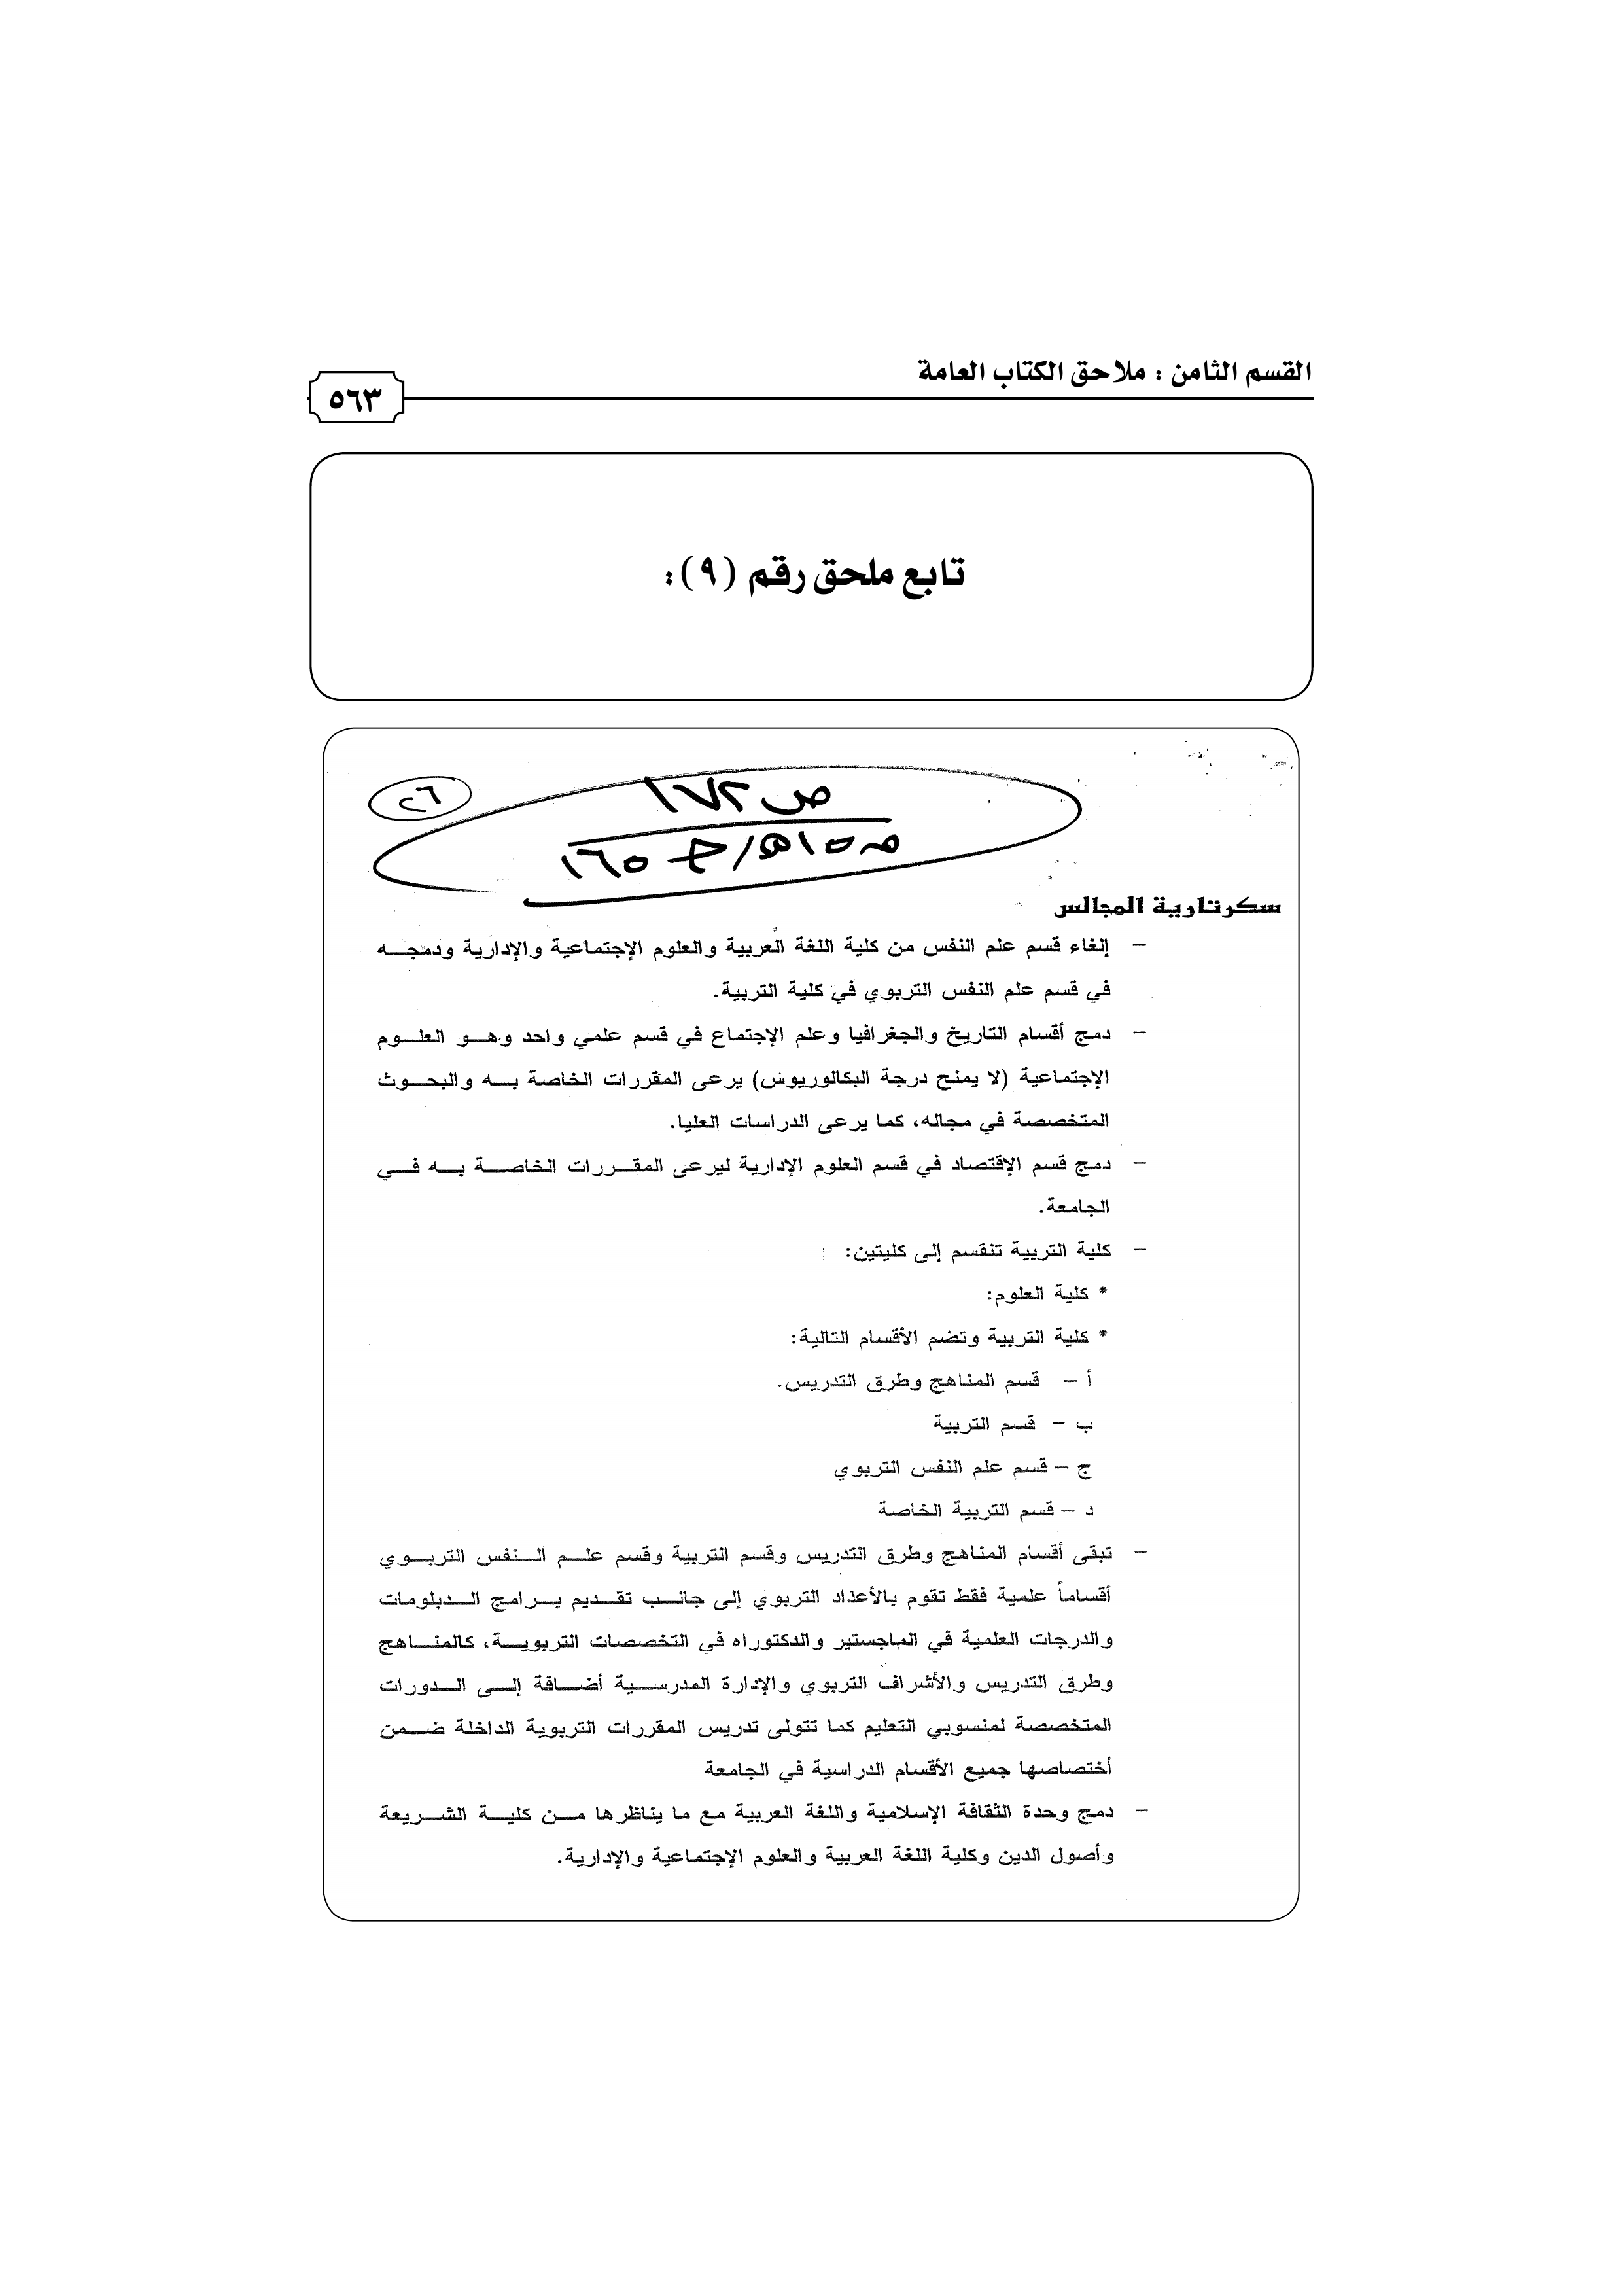 القسم الثامن : ملاحق الكتاب العامة
٥٦٣
تابع ملحق رقم (٩):
ص ١٧٢
٢٦
سكرتارية المجالس
– إلغاء قسم علم النفس من كلية اللغة العربية والعلوم الإجتماعية والإدارية ودمجه
في قسم علم النفس التربوي في كلية التربية.
– دمج أقسام التاريخ والجغرافيا وعلم الإجتماع في قسم علمي واحد وهو العلوم
الإجتماعية (لا يمنح درجة البكالوريوس) يرعى المقررات الخاصة به والبحوث
المتخصصة في مجاله، كما يرعى الدراسات العليا.
– دمج قسم الإقتصاد في قسم العلوم الإدارية ليرعى المقررات الخاصة به في
الجامعة.
– كلية التربية تنقسم إلى كليتين:
* كلية العلوم:
* كلية التربية وتضم الأقسام التالية:
أ – قسم المناهج وطرق التدريس.
ب – قسم التربية
ج – قسم علم النفس التربوي
د – قسم التربية الخاصة
– تبقى أقسام المناهج وطرق التدريس وقسم التربية وقسم علم النفس التربوي
أقساماً علمية فقط تقوم بالأعداد التربوي إلى جانب تقديم برامج الدبلومات
والدرجات العلمية في الماجستير والدكتوراه في التخصصات التربوية، كالمناهج
وطرق التدريس والأشراف التربوي والإدارة المدرسية أضافة إلى الدورات
المتخصصة لمنسوبي التعليم كما تتولى تدريس المقررات التربوية الداخلة ضمن
أختصاصها جميع الأقسام الدراسية في الجامعة
– دمج وحدة الثقافة الإسلامية واللغة العربية مع ما يناظرها من كلية الشريعة
وأصول الدين وكلية اللغة العربية والعلوم الإجتماعية والإدارية.